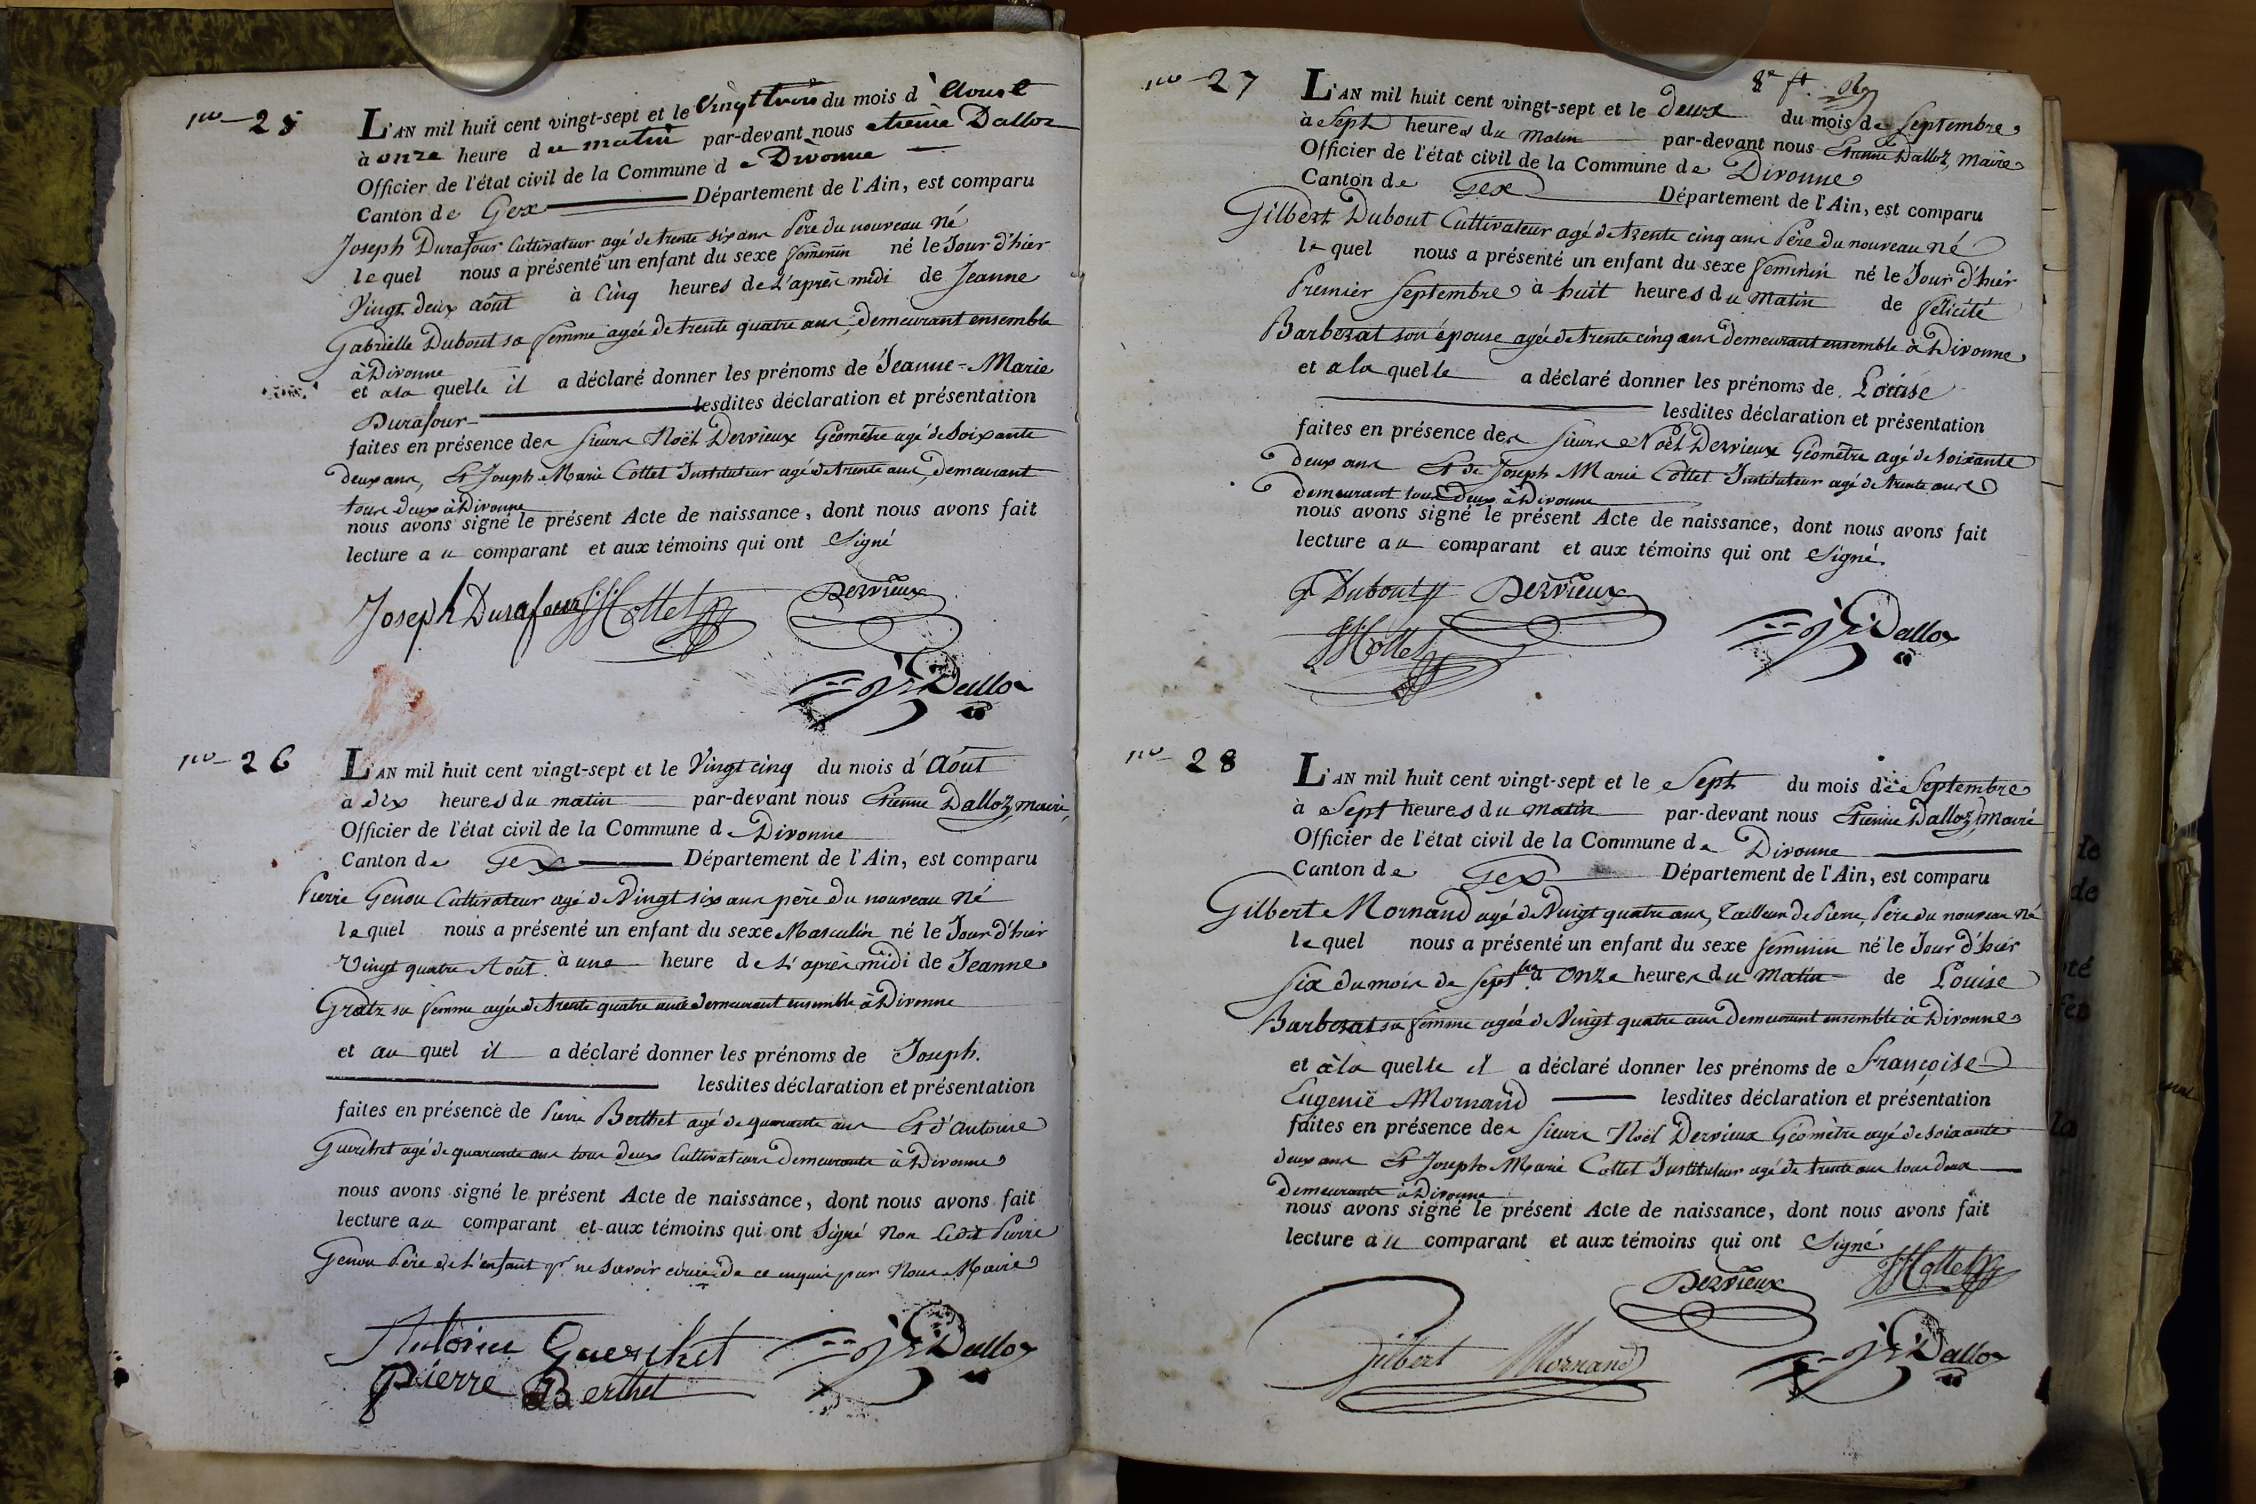 no 25
L'AN mil huit cent vingt-sept et le Vingt trois du mois d'Aoust
à onze heure du matin par-devant nous etienne Dalloz
Officier de l'état civil de la Commune de Divonne
Canton de Gex Département de l'Ain, est comparu
Joseph Durafour Cultivateur agé de trente six ans Père du nouveau Né
lequel nous a présenté un enfant du sexe feminin né le Jour d'hier
Vingt deux août à Cinq heures de L'après midi de Jeanne
Gabrielle Dubout sa femme agée de trente quatre ans, demeurant ensemble
à Divonne
et a la quelle il a déclaré donner les prénoms de Jeanne-Marie
Durafour lesdites déclaration et présentation
faites en présence des sieurs Noël Dervieux Géomètre agé de Soixante
deux ans, Et Joseph Marie Collet Instituteur agé de trente ans, demeurant
tous Deux à Divonne
nous avons signé le présent Acte de naissance, dont nous avons fait
lecture au comparant et aux témoins qui ont Signé
Joseph Durafour JMCollet Dervieux
Dalloz
no 26
L'AN mil huit cent vingt-sept et le Vingt cinq du mois d'Août
à dix heures du matin par-devant nous Etienne Dalloz, maire,
Officier de l'état civil de la Commune de Divonne
Canton de Gex Département de l'Ain, est comparu
Pierre Genou Cultivateur agé de Vingt six ans père du nouveau Né
lequel nous a présenté un enfant du sexe Masculin né le Jour d'hier
Vingt quatre Août à une heure de L'après midi de Jeanne
Gratz sa femme agée de trente quatre ans demeurant ensemble à Divonne
et au quel il a déclaré donner les prénoms de Joseph.
lesdites déclaration et présentation
faites en présence de Pierre Berthet agé de quarante ans Et d'Antoine
Guerchet agé de quarante ans tous deux Cultivateurs demeurants à Divonne
nous avons signé le présent Acte de naissance, dont nous avons fait
lecture au comparant et aux témoins qui ont Signé Non Ledit Pierre
Genou Père de L'enfant pr ne Savoir écrire de ce enquis par Nous Maire
Antoine Guerchet Dalloz
Pierre Berthet
no 27
L'AN mil huit cent vingt-sept et le Deux du mois de Septembre
à Sept heures du Matin par-devant nous Etienne Dalloz, Maire
Officier de l'état civil de la Commune de Divonne
Canton de Gex Département de l'Ain, est comparu
Gilbert Dubout Cultivateur agé de trente cinq ans Père du nouveau Né
lequel nous a présenté un enfant du sexe feminin né le Jour d'hier
Premier Septembre à huit heures du Matin de félicité
Barbezat son épouse agée de trente cinq ans demeurant ensemble à Divonne
et a la quelle a déclaré donner les prénoms de Louise
lesdites déclaration et présentation
faites en présence des sieurs Noël Dervieux Géomètre agé de soixante
deux ans Et de Joseph Marie Collet Instituteur agé de trente ans
demeurant tous Deux à Divonne
nous avons signé le présent Acte de naissance, dont nous avons fait
lecture au comparant et aux témoins qui ont Signé
G Dubout Dervieux
JMCollet Dalloz
no 28
L'AN mil huit cent vingt-sept et le Sept du mois de Septembre
à Sept heures du Matin par-devant nous Etienne Dalloz, Maire
Officier de l'état civil de la Commune de Divonne
Canton de Gex Département de l'Ain, est comparu
Gilbert Mornand agé de Vingt quatre ans, Tailleur de Pierre, Père du nouveau Né
lequel nous a présenté un enfant du sexe feminin né le Jour d'hier
Six du mois de Septbre à onze heures du Matin de Louise
Barbezat sa femme agée de Vingt quatre ans Demeurant ensemble à Divonne
et à la quelle il a déclaré donner les prénoms de Françoise
Eugenie Mornand lesdites déclaration et présentation
faites en présence des sieurs Noël Dervieux Géomètre agé de soixante
deux ans Et Joseph Marie Collet Instituteur agé de trente ans tous deux
Demeurants à Divonne
nous avons signé le présent Acte de naissance, dont nous avons fait
lecture au comparant et aux témoins qui ont Signé
Dervieux JMCollet
Gilbert Mornand Dalloz